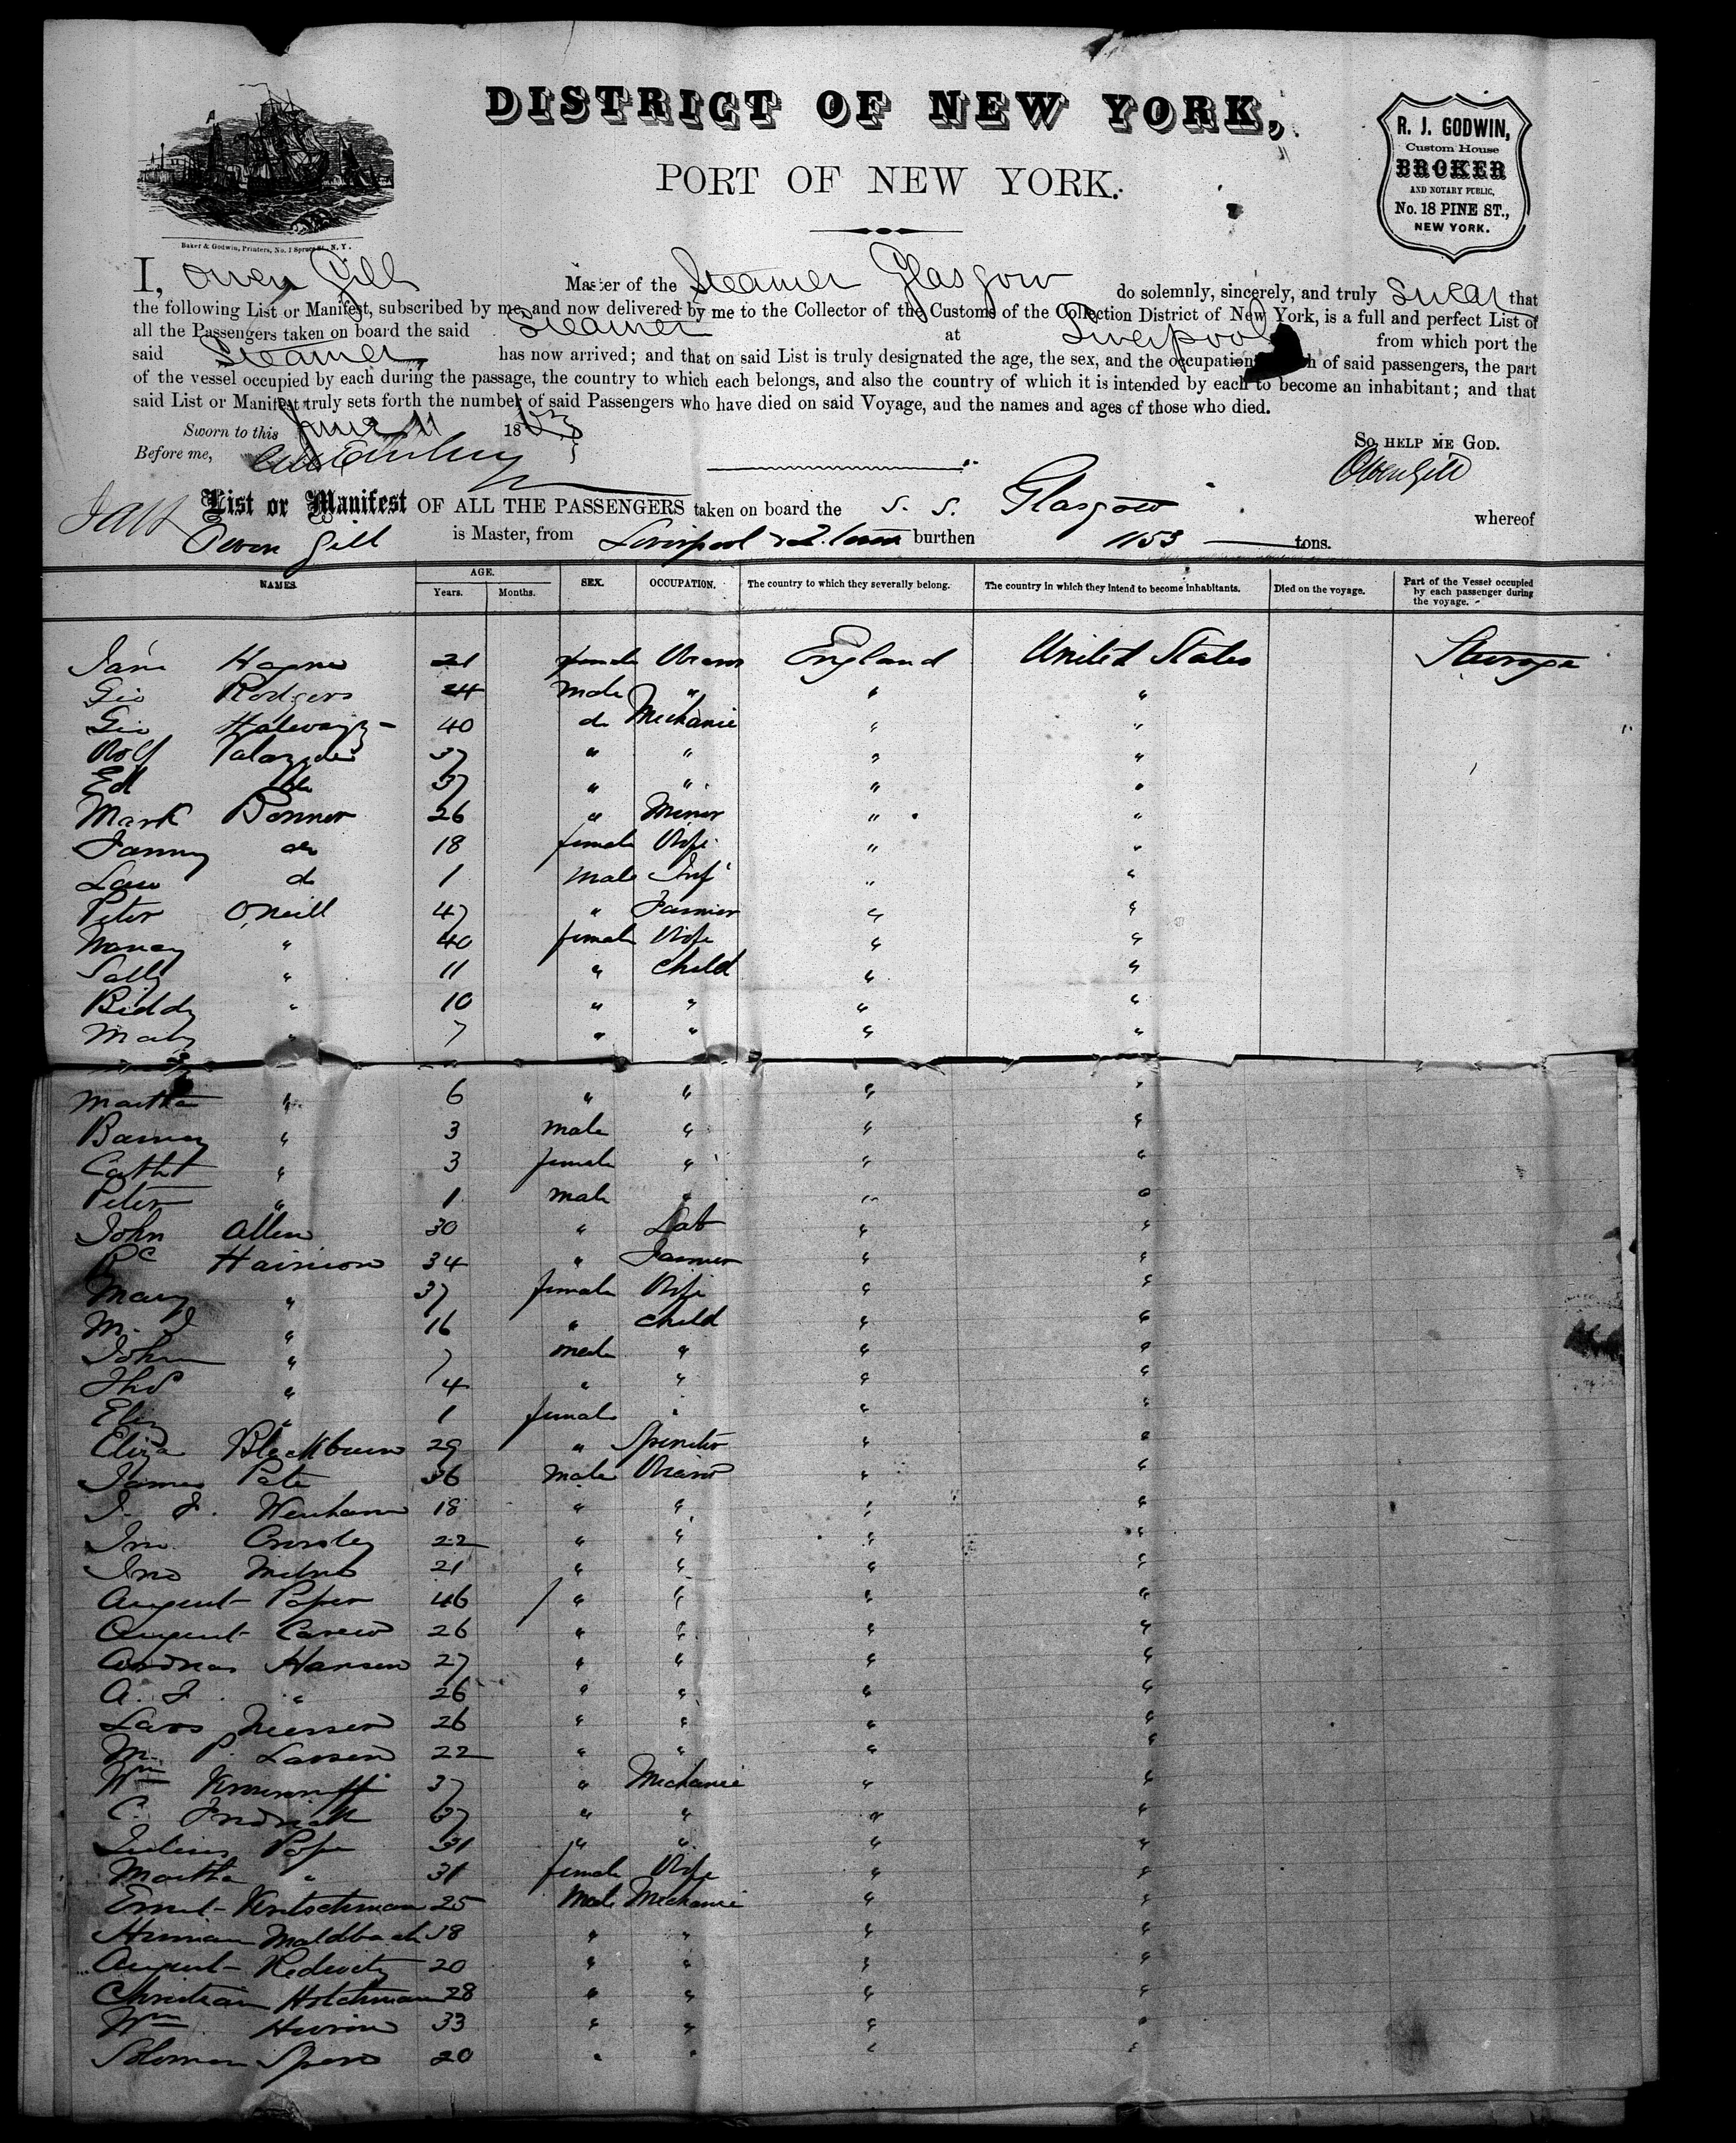 DISTRICT OF NEW YORK,
PORT OF NEW YORK.
Baker & Godwin, Printers, No. 1 Spruce St., N. Y.
R. J. GODWIN,
Custom House
BROKER
AND NOTARY PUBLIC,
No. 18 PINE ST.,
NEW YORK.
I, Owen Gill Master of the Steamer Glasgow do solemnly, sincerely, and truly swear that
the following List or Manifest, subscribed by me, and now delivered by me to the Collector of the Customs of the Collection District of New York, is a full and perfect List of
all the Passengers taken on board the said Steamer at Liverpool from which port the
said Steamer has now arrived; and that on said List is truly designated the age, the sex, and the occupation of said passengers, the part
of the vessel occupied by each during the passage, the country to which each belongs, and also the country of which it is intended by each to become an inhabitant; and that
said List or Manifest truly sets forth the number of said Passengers who have died on said Voyage, and the names and ages of those who died.
Sworn to this June 11 18
So help me God.
Before me,
Owen Gill
List or Manifest OF ALL THE PASSENGERS taken on board the S. S. Glasgow whereof
Owen Gill is Master, from Liverpool burthen 1153 tons.
NAMES. AGE. Years. Months. SEX. OCCUPATION. The country to which they severally belong. The country in which they intend to become inhabitants. Died on the voyage. Part of the Vessel occupied by each passenger during the voyage.
Jane 21 female England United States Steerage
Geo Rodgers 24 male " " "
Geo 40 do Mechanic " "
37 " " " "
Ed do 37 " " " "
Mark Bonner 26 " Miner " "
Fanny do 18 female Wife " "
do 1 male Inf " "
Peter O'Neill 47 " Farmer " "
Nancy " 40 female Wife " "
Sally " 11 " child " "
Biddy " 10 " " " "
Mary " 7 " " " "
Martha " 6 " " " "
Barney " 3 male " " "
Cath " 3 female " " "
Peter " 1 male " " "
John Allen 30 " Lab " "
34 " Farmer " "
Mary " 37 female Wife " "
M. J " 16 " child " "
John " 7 male " " "
Thos " 4 " " " "
Eliz " 1 female " " "
Eliza Blackburn 29 " Spinster " "
James Pate 36 male " "
J. J. Wenham 18 " " " "
Jno. Crossley 22 " " " "
Jno Milne 21 " " " "
August 46 " " " "
August Carew 26 " " " "
Andreas Hansen 27 " " " "
A. J. " 26 " " " "
Lars 26 " " " "
M. P. Larsen 22 " " " "
Wm 37 " Mechanic " "
C. Fredrick 37 " " " "
Julius Pope 31 " " " "
Martha " 31 female Wife " "
Ernst 25 Male Mechanic " "
Herman Maldbach 18 " " " "
August 20 " " " "
Christian Hotchman 28 " " " "
Wm 33 " " " "
Solomon Spero 20 " " " "